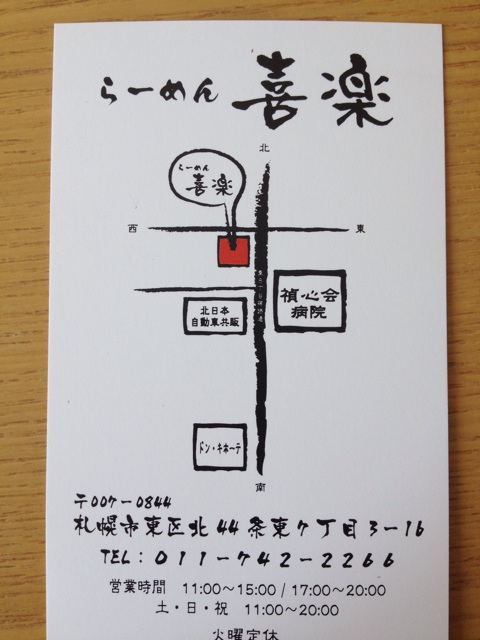 らーめん 喜楽
北
らーめん
喜楽
西
東
禎心会
病院
北日本
自動車共販
ドン・キホーテ
南
〒007-0844
札幌市東区北44条東7丁目3-16
TEL:011-742-2266
営業時間 11:00～15:00 / 17:00～20:00
土・日・祝 11:00～20:00
火曜定休